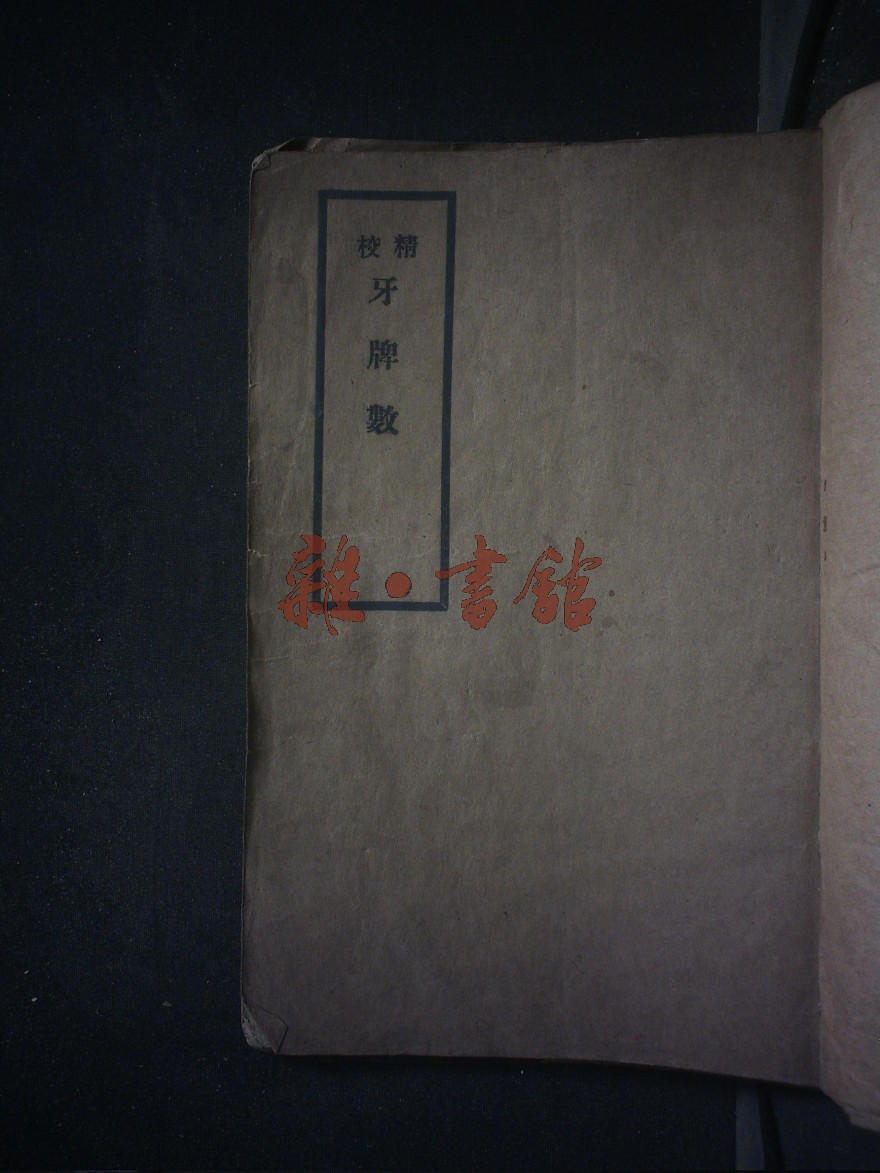 精校
牙牌數
雜·書館